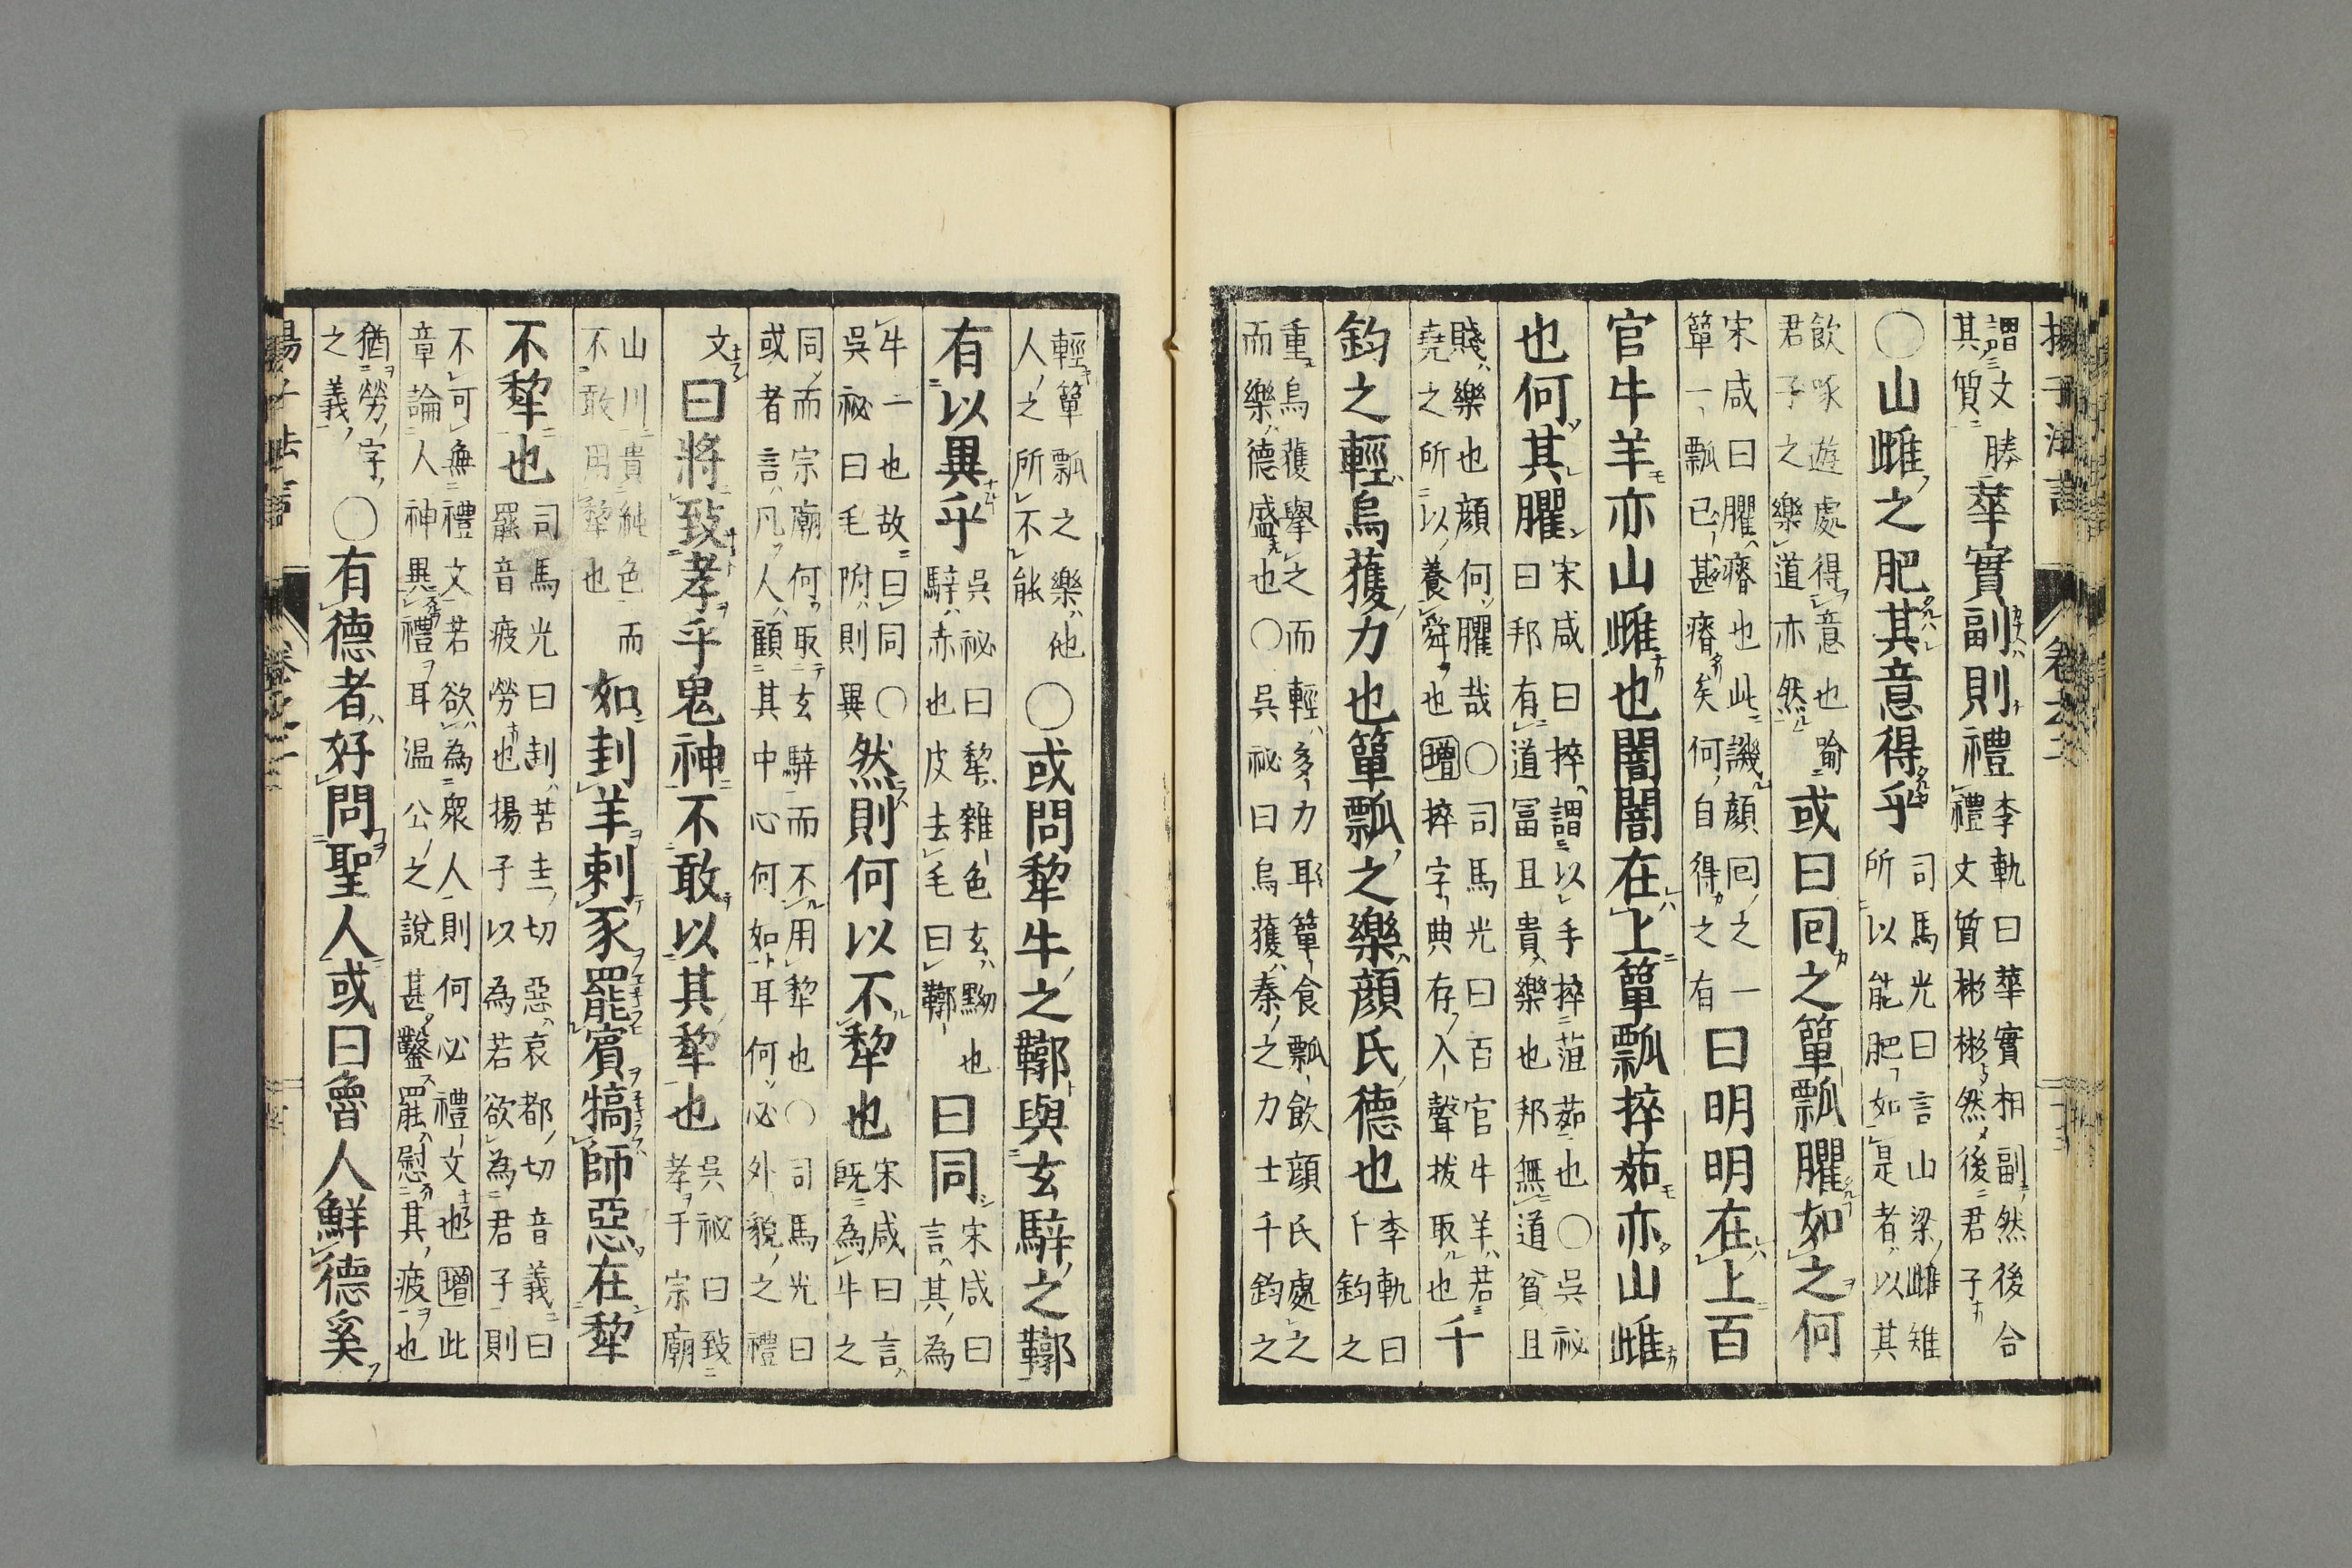 揚子法言
謂文勝華實副則禮李軌曰華實相副然後合
其質禮文質彬彬然後君子
○山雌之肥其意得乎司馬光曰言山梁雌雉
所以能肥如是者以其
飲啄遊處得意也喻或曰回之簞瓢臞如之何
君子之樂道亦然
宋咸曰臞瘠也此譏顔回之一曰明明在上百
簞一瓢已甚瘠矣何自得之有
官牛羊亦山雌也闇闇在上簞瓢捽茹亦山雌
也何其臞宋咸曰捽謂以手捽菹茹也○吳祕
曰邦有道冨且貴樂也邦無道貧且
賤樂也顔何臞哉○司馬光曰百官牛羊若千
堯之所以養舜也增捽字典存入聲拔取也
鈞之輕烏獲力也簞瓢之樂顔氏德也李軌曰
千鈞之
重烏獲舉之而輕多力耳簞食瓢飲顔氏處之
而樂德盛也○吳祕曰烏獲秦之力士千鈞之
輕簞瓢之樂他○或問犂牛之鞹與玄騂之鞹
人之所不能
有以異乎吳祕曰犂雜色玄黝也曰同宋咸曰
騂赤也皮去毛曰鞹言其為
牛一也故曰同○然則何以不犂也宋咸曰言
吳祕曰毛附則異旣為牛之
同而宗廟何取玄騂而不用犂也○司馬光曰
或者言凡人顧其中心何如耳何必外貌之禮
文曰將致孝乎鬼神不敢以其犂也吳祕曰致
孝于宗廟
山川貴純色而如刲羊刺豕罷賓犒師惡在犂
不敢用犂也
不犂也司馬光曰刲苦圭切惡哀都切音義曰
罷音疲勞也揚子以為若欲為君子則
不可無禮文若欲為衆人則何必禮文也增此
章論人神異禮耳温公之說甚鑿罷慰其疲也
猶勞字○有德者好問聖人或曰魯人鮮德奚
之義